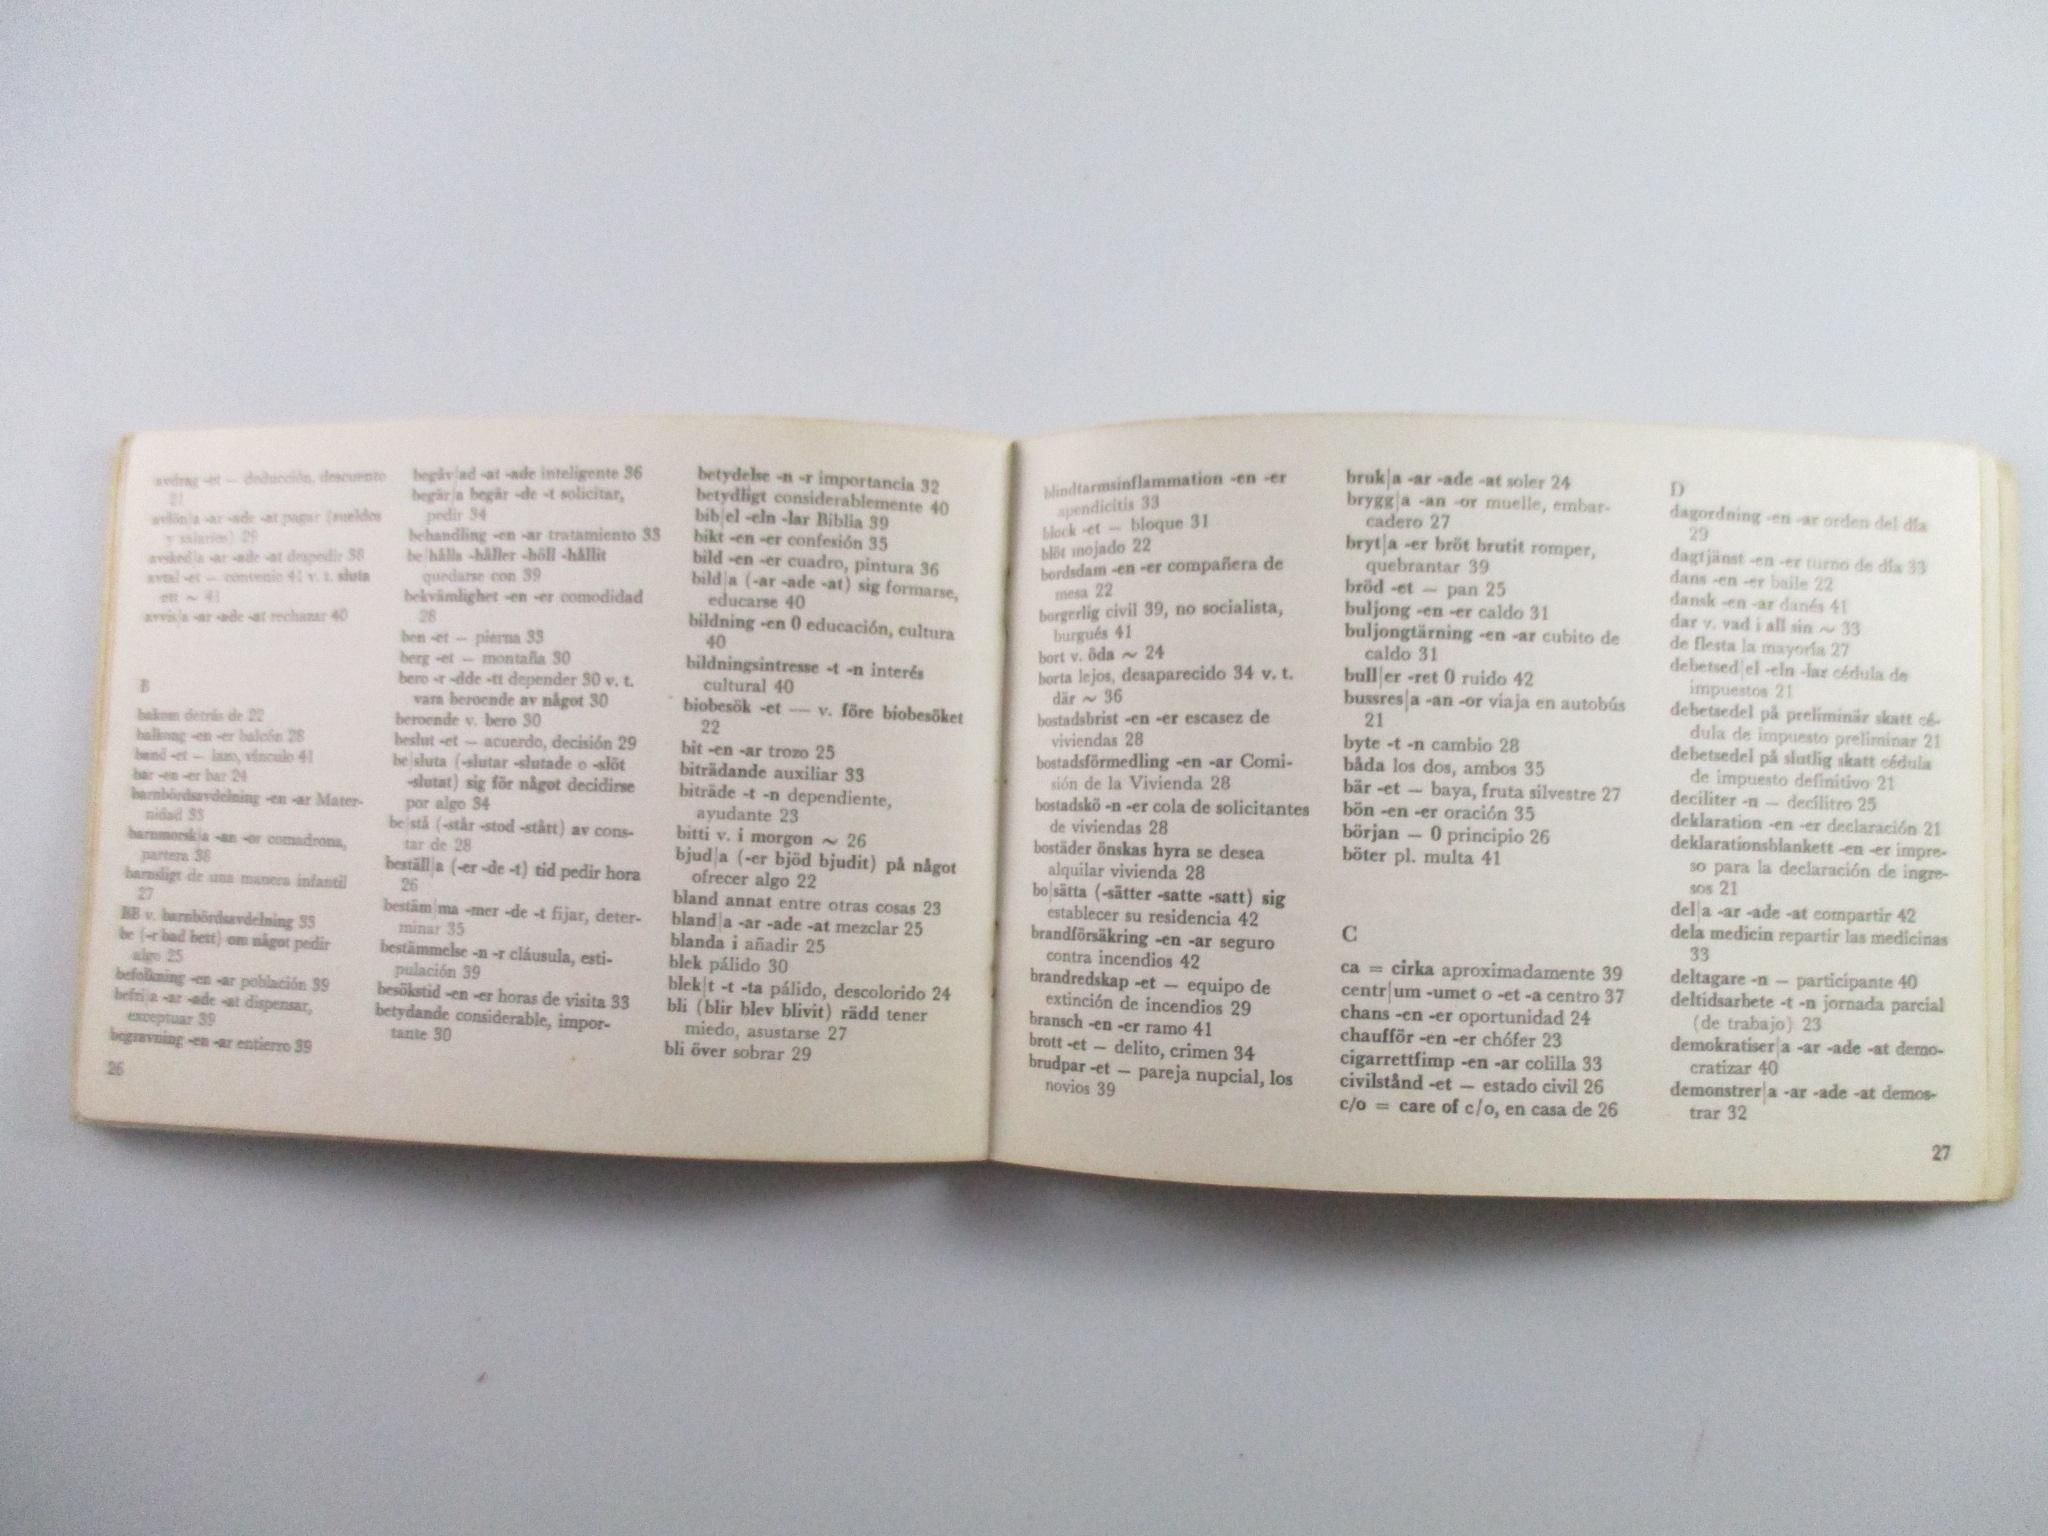 avdrag -et — deducción, descuento
21
avlön|a -ar -ade -at pagar (sueldos
y salarios) 29
avsked|a -ar -ade -at despedir 38
avtal -et — convenio 41 v. t. sluta
ett ~ 41
avvis|a -ar -ade -at rechazar 40
B
bakom detrás de 22
balkong -en -er balcón 28
band -et — lazo, vínculo 41
bar -en -er bar 24
barnbördsavdelning -en -ar Mater-
nidad 33
barnmorsk|a -an -or comadrona,
partera 38
barnsligt de una manera infantil
27
BB v. barnbördsavdelning 33
be (-r bad bett) om något pedir
algo 25
befolkning -en -ar población 39
befri|a -ar -ade -at dispensar,
exceptuar 39
begravning -en -ar entierro 39
26
begåv|ad -at -ade inteligente 36
begär|a begär -de -t solicitar,
pedir 34
behandling -en -ar tratamiento 33
be|hålla -håller -höll -hållit
quedarse con 39
bekvämlighet -en -er comodidad
28
ben -et — pierna 33
berg -et — montaña 30
bero -r -dde -tt depender 30 v. t.
vara beroende av något 30
beroende v. bero 30
beslut -et — acuerdo, decisión 29
be|sluta (-slutar -slutade o -slöt
-slutat) sig för något decidirse
por algo 34
be|stå (-står -stod -stått) av cons-
tar de 28
beställ|a (-er -de -t) tid pedir hora
26
bestäm|ma -mer -de -t fijar, deter-
minar 35
bestämmelse -n -r cláusula, esti-
pulación 39
besökstid -en -er horas de visita 33
betydande considerable, impor-
tante 30
betydelse -n -r importancia 32
betydligt considerablemente 40
bib|el -eln -lar Biblia 39
bikt -en -er confesión 35
bild -en -er cuadro, pintura 36
bild|a (-ar -ade -at) sig formarse,
educarse 40
bildning -en 0 educación, cultura
40
bildningsintresse -t -n interés
cultural 40
biobesök -et — v. före biobesöket
22
bit -en -ar trozo 25
biträdande auxiliar 33
biträde -t -n dependiente,
ayudante 23
bitti v. i morgon ~ 26
bjud|a (-er bjöd bjudit) på något
ofrecer algo 22
bland annat entre otras cosas 23
bland|a -ar -ade -at mezclar 25
blanda i añadir 25
blek pálido 30
blek|t -t -ta pálido, descolorido 24
bli (blir blev blivit) rädd tener
miedo, asustarse 27
bli över sobrar 29
blindtarmsinflammation -en -er
apendicitis 33
block -et — bloque 31
blöt mojado 22
bordsdam -en -er compañera de
mesa 22
borgerlig civil 39, no socialista,
burgués 41
bort v. öda ~ 24
borta lejos, desaparecido 34 v. t.
där ~ 36
bostadsbrist -en -er escasez de
viviendas 28
bostadsförmedling -en -ar Comi-
sión de la Vivienda 28
bostadskö -n -er cola de solicitantes
de viviendas 28
bostäder önskas hyra se desea
alquilar vivienda 28
bo|sätta (-sätter -satte -satt) sig
establecer su residencia 42
brandförsäkring -en -ar seguro
contra incendios 42
brandredskap -et — equipo de
extinción de incendios 29
bransch -en -er ramo 41
brott -et — delito, crimen 34
brudpar -et — pareja nupcial, los
novios 39
bruk|a -ar -ade -at soler 24
brygg|a -an -or muelle, embar-
cadero 27
bryt|a -er bröt brutit romper,
quebrantar 39
bröd -et — pan 25
buljong -en -er caldo 31
buljongtärning -en -ar cubito de
caldo 31
bull|er -ret 0 ruido 42
bussres|a -an -or viaja en autobús
21
byte -t -n cambio 28
båda los dos, ambos 35
bär -et — baya, fruta silvestre 27
bön -en -er oración 35
början — 0 principio 26
böter pl. multa 41
C
ca = cirka aproximadamente 39
centr|um -umet o -et -a centro 37
chans -en -er oportunidad 24
chaufför -en -er chófer 23
cigarrettfimp -en -ar colilla 33
civilstånd -et — estado civil 26
c/o = care of c/o, en casa de 26
D
dagordning -en -ar orden del día
29
dagtjänst -en -er turno de día 33
dans -en -er baile 22
dansk -en -ar danés 41
dar v. vad i all sin ~ 33
de flesta la mayoría 27
debetsed|el -eln -lar cédula de
impuestos 21
debetsedel på preliminär skatt cé-
dula de impuesto preliminar 21
debetsedel på slutlig skatt cédula
de impuesto definitivo 21
deciliter -n — decílitro 25
deklaration -en -er declaración 21
deklarationsblankett -en -er impre-
so para la declaración de ingre-
sos 21
del|a -ar -ade -at compartir 42
dela medicin repartir las medicinas
33
deltagare -n — participante 40
deltidsarbete -t -n jornada parcial
(de trabajo) 23
demokratiser|a -ar -ade -at demo-
cratizar 40
demonstrer|a -ar -ade -at demos-
trar 32
27